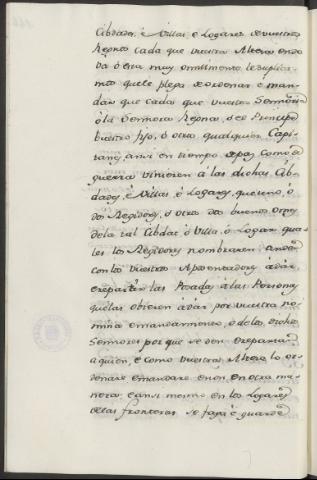 Cibdades, é Villas é Logares de vuestros
Reynos cada que vuestra Alteza enbia
va ó era muy omillmente le suplica-
mos quele plega de ordenar é man-
dar que cada que vuestra Sennoria
ó la Sennora Reyna, ó el Principe
vuestro fijo, ó otro qualquier Capi-
tany, ansi en tiempo de paz como de
guerra vinieren á las dichas Cib-
dades, é Villas, é Logares, que uno, ó
dos Regidores, ó otros dos buenos omes
dela tal Cibdat ó Villa, ó Logar qua-
les los Regidores nombraren anden
con los vuestros Aposentadores á dar,
é repartir las Posadas á las Personas
que las obieren á dar por vuestra nó-
mina é mandamiento, ó delos dichos
Sennores por que se den é repartan
á quien, é como vuestra Alteza lo or-
denare é mandare é non en otra ma-
nera, é ansi mesmo en los Logares
delas fronteras se faga é guarde